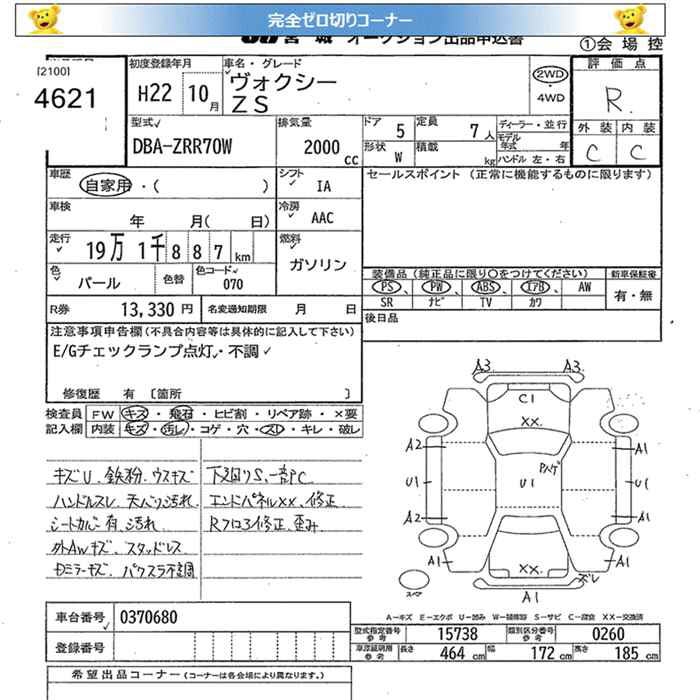 完全ゼロ切りコーナー
宮城 オークション出品申込書
①会場控
[2100]
4621
初度登録年月
H22 10月
車名・グレード
ヴォクシー
ZS
2WD
・
4WD
評価点
R.
外装 内装
C C
型式
DBA-ZRR70W
排気量
2000 cc
ドア 5
形状 W
定員 7人
積載 kg
ディーラー・並行
モデル年式 年
ハンドル 左・右
車歴
自家用・( )
シフト
IA
セールスポイント (正常に機能するものに限ります)
車検
年 月( 日)
冷房
AAC
走行
19万 1千 8 8 7 km
燃料
ガソリン
色
パール
色替
色コード
070
装備品(純正品に限り〇をつけてください)
新車保証書
PS PW ABS エアB AW
SR ナビ TV カワ
有・無
R券 13,330 円
名変通知期限 月 日
後日品
注意事項申告欄(不具合内容等は具体的に記入して下さい)
E/Gチェックランプ点灯・不調
修復歴 有 〔箇所 〕
検査員 FW キズ・飛石・ヒビ割・リペア跡・×要
記入欄 内装 キズ・汚レ・コゲ・穴・スレ・キレ・破レ
キズU、鉄粉、ウスキズ
ハンドルスレ、天バリ汚れ
シートカバー有、汚れ
外AWキズ、スタッドレス
ドミラーキズ、パワスラ不調
下廻りS、一部PC
エンドパネルXX、修正
Rフロア修正、歪み
A3 A3
C1
XX.
Pハゲ
A2 A1
U1 U1 U1
A2 A1
A1 A1
XX.
ズレ
A1
スペア
A-キズ E-エクボ U-凹み W-補修跡 S-サビ C-腐食 XX-交換済
車台番号 0370680
登録番号
型式指定番号 参考 15738
類別区分番号 参考 0260
長さ 464 cm
幅 172 cm
高さ 185 cm
希望出品コーナー (コーナーは各会場により異なります。)